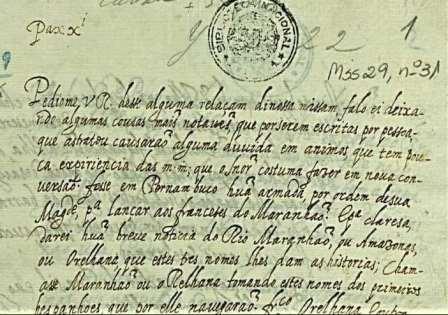 Pax xi
BIBLIOTECA NACIONAL
22 1
Mss 29, nº 31
9
Pediome, V R. desse alguma relaçam dinossa missam, falo ei deixa-
ndo algumas cousas mais notaveis, que por serem escritas por pessoa
que as tratou causarão alguma duvida em animos, que tem pou-
ca experiencia das m.m; que o Snor costuma fazer em nova con-
versaõ. fosse em Pernambuco huã armada por ordem de sua
Magde, pª lancar aos franceses do Maranhaõ. E pª claresa,
darei huã breve noticia do Rio Maranhaõ, ou Amazonas,
ou Orelhana que estes tres nomes lhes dam as historias; Cham-
ase Maranhaõ ou Orelhana tomando estes nomes dos primeiros
hespanhoes que por elle navegaraõ. Orelhana